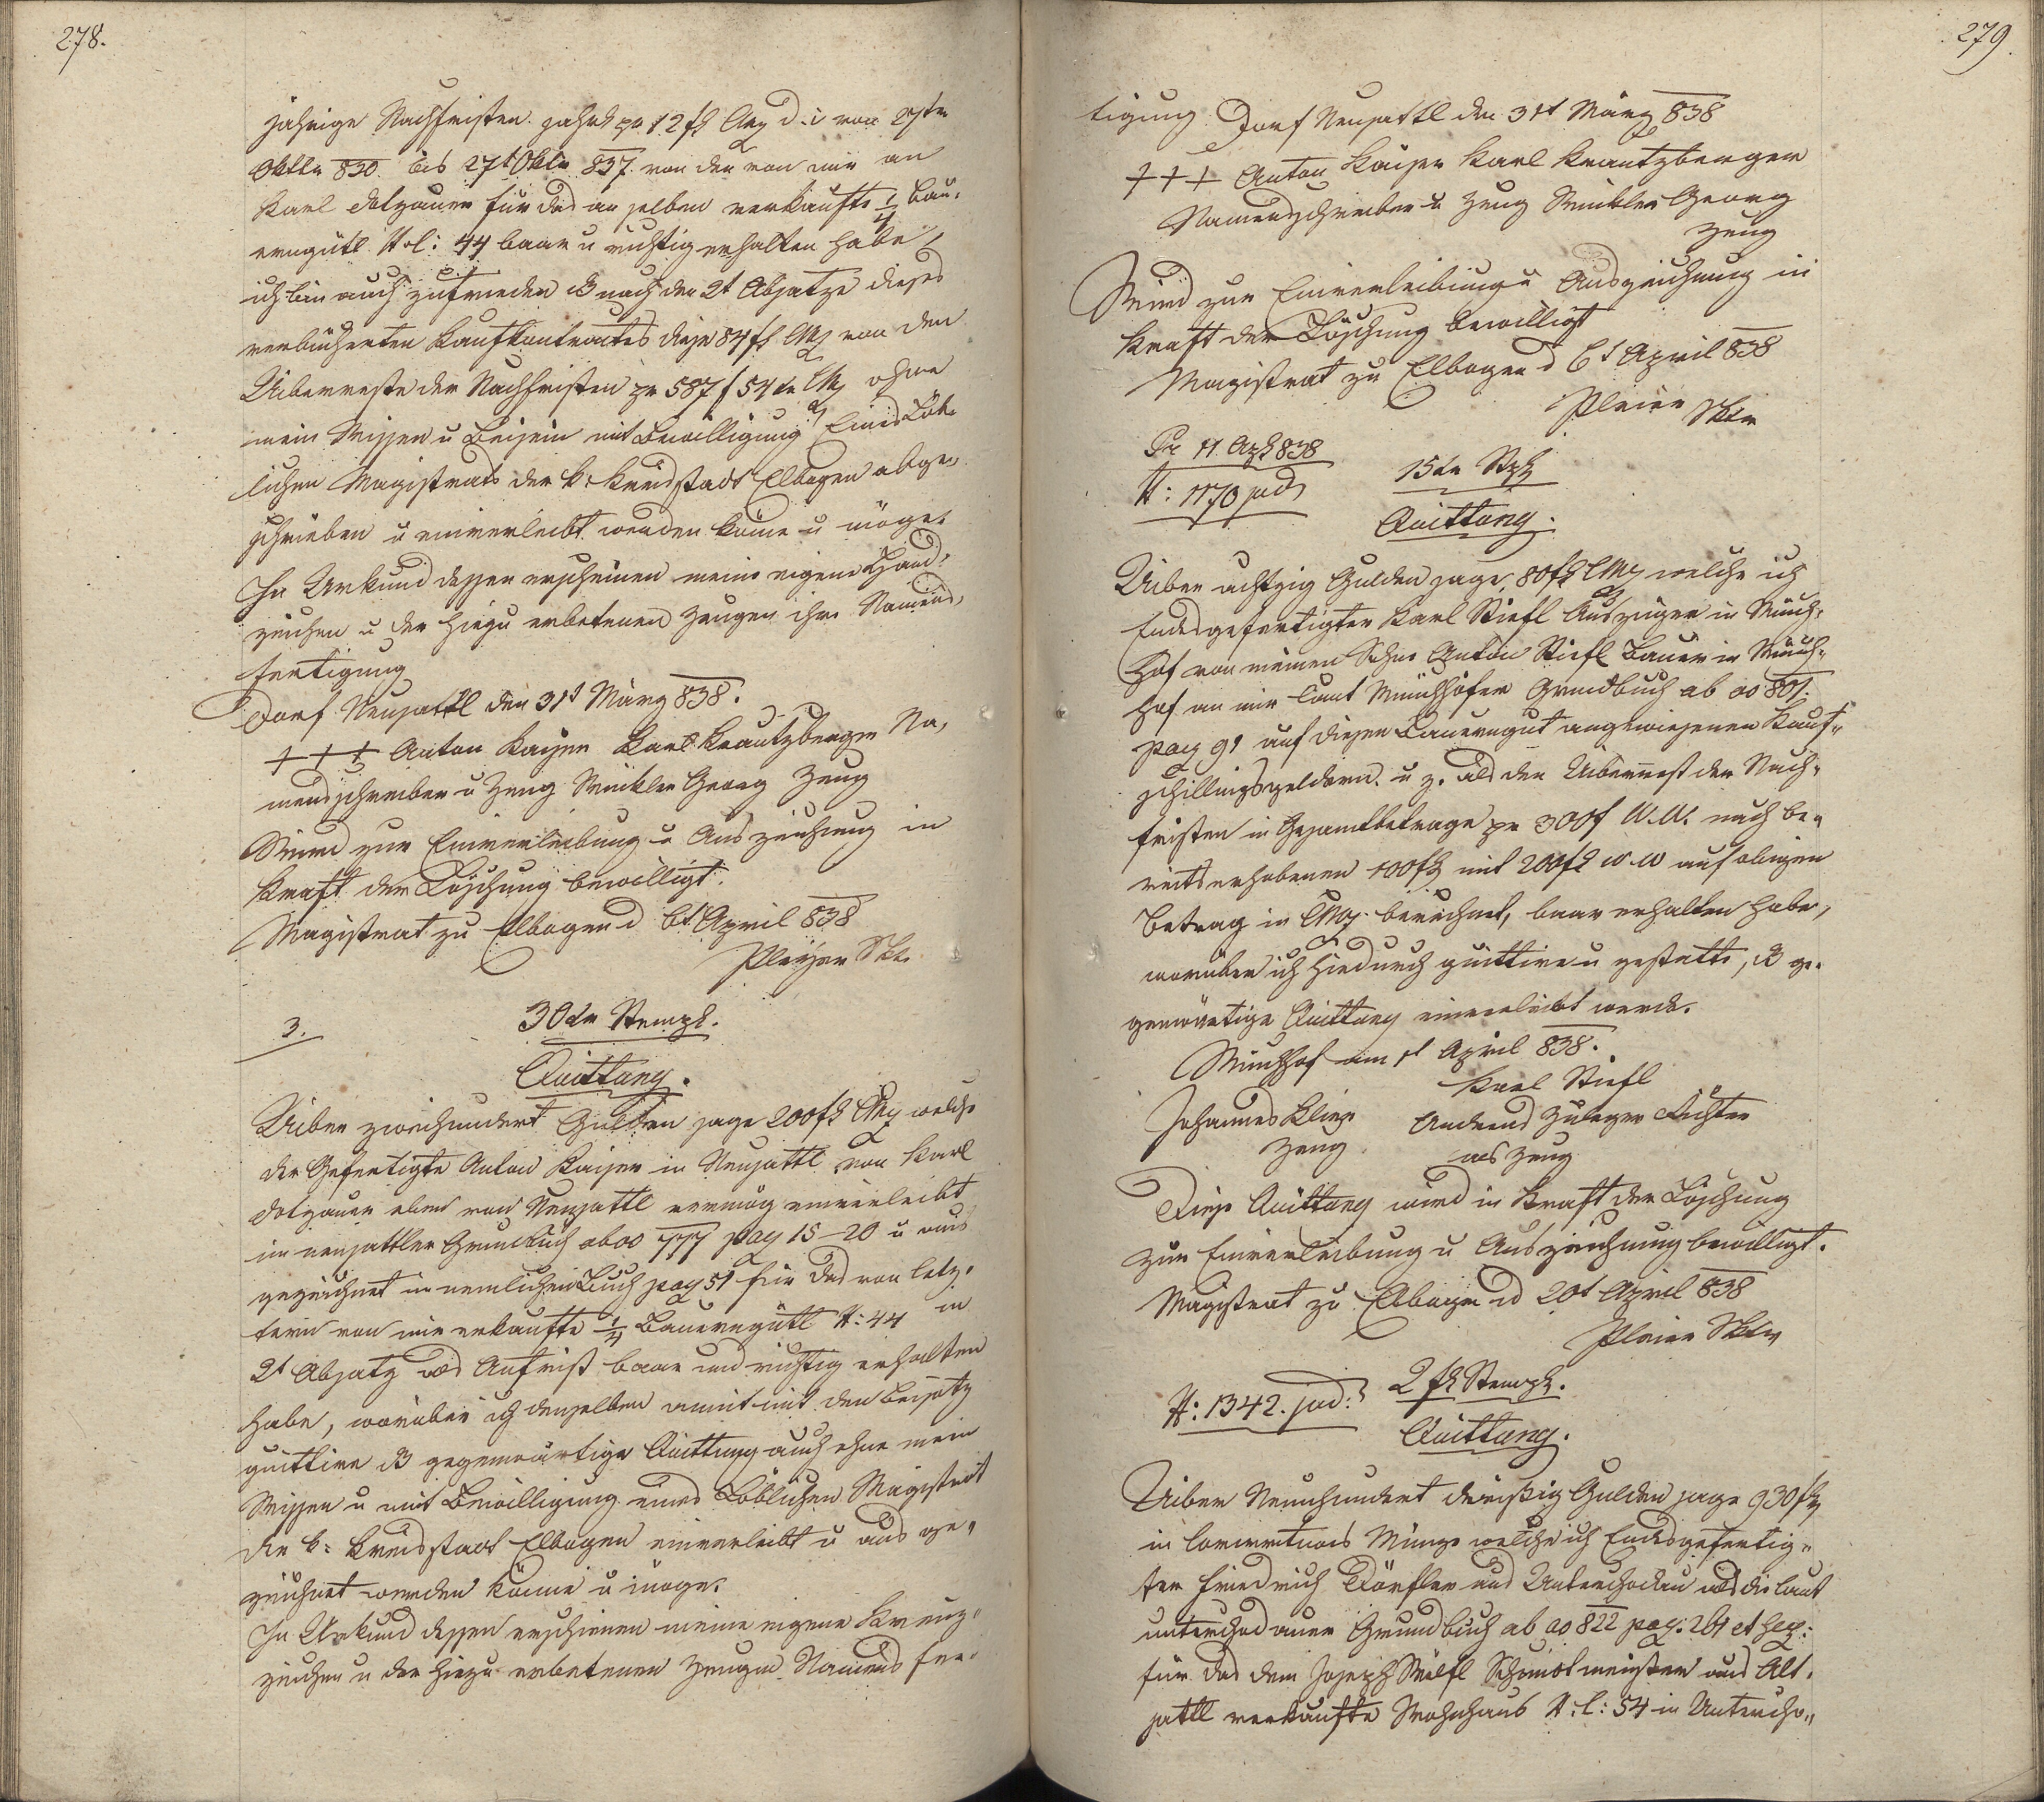 278.
jährige Nachfristen jahrl pr 12 fl CMz d. i von 27tn
Oktbr 830. bis 27t Oktbr 837. von den von mir an
Karl Dotzauer für das an selben verkaufte 1/4 Bau-
erngütl N. C: 44 baar u richtig erhalten habe,
ich bin auch zufrieden daß nach den 2t Absatze dieses
verbücherten Kaufkontractes diese 84 fl CMz von den
Uiberreste der Nachfristen pr 587 f 54 kr CMz ohne
mein Wissen u Beisein mit Bewilligung Eines Löb-
lichen Magistrats der k: Kreisstadt Elbogen abge-
schrieben u einverleibt werden könne u möge.
In Urkund dessen erscheinen meine eigene Hand-
zeichen u der hiezu erbetenen Zeugen ihre Namens-
fertigung
Dorf Neusattl den 31t März 838.
+++ Anton Kaiser Karl Krautzberger Na-
mensschreiber u Zeug Winkler Georg Zeug
Wird zur Einverleibung u Auszeichnung in
Kraft der Löschung bewilligt.
Magistrat zu Elbogen d 6t April 838
Pleyer Skt.
3.
30 kr Stempl.
Quittung.
Uiber zweihundert Gulden sage 200 fl CMz welche
der Gefertigte Anton Kaiser in Neusattl von Karl
Dotzauer eben von Neusattl vermög einverleibt
im neusattler Grundbuch ab ao 777 pag 15–20 u aus
gezeichnet in nemlichen Buch pag 51 für das von letz-
tern von mir erkaufte 1/4 Bauerngütl N: 44 in
2t Absatz als Aufrist baar und richtig erhalten
habe, worüber ich denselben amit mit den Beisatz
quittire daß gegenwärtige Quittung auch ohne mein
Wissen u mit Bewilligung eines Löblichen Magistrat
der k: Kreisstadt Elbogen einverleibt u aus ge-
zeichnet werden könne u möge.
In Urkund dessen erschienen meine eigene Kreuz-
zeichen u der hiezu erbetenen Zeugen Namens fer-
279.
tigung Dorf Neusattl den 31t März 838
+++ Anton Kaiser Karl Krautzberger
Namensschreiber u Zeug Winkler Georg
Zeug
Wird zur Einverleibung u Auszeichnung in
Kraft der Löschung bewilligt
Magistrat zu Elbogen d 6t April 838
Pleier Sktr
Pr 11 Apl 838
N: 1170 jud
15 kr Stpl
Quittung.
Uiber achtzig Gulden sage 80 fl CMz welche ich
Endesgefertigter Karl Stiefl Auszügler in Münch-
hof von meinen Sohne Anton Stiefl Bauer in Münch-
hof an mir laut Münchhöfer Grundbuch ab ao 801.
pag 91 auf diesen Bauerngut angewiesenen Kauf-
schillingsgeldern. u z. als den Uiberrest der Nach-
fristen in Gesamtbetrage pr 300 f W. W. nach be-
reits erhobenen 100 fl mit 200 fl W. W auf obigen
Betrag in CMz berechnet, baar erhalten habe,
worüber ich hiedurch quittire u gestatte, daß ge-
genwärtige Quittung einverleibt werde.
Münchhof am 1t April 838.
Karl Stiefl
Johannes
Zeug
Andreas Zuleger Richter
als Zeug
Diese Quittung wird in Kraft der Löschung
zur Einverleibung u Auszeichnung bewilligt.
Magistrat zu Elbogen d 20t April 838
Pleier Sktr
N: 1342. jud:
2 fl Stempl.
Quittung.
Uiber Neunhundert dreißig Gulden sage 930 fl
in Conventions Münze welche ich Endesgefertig-
ter Friedrich Dörfler aus Unterchodau als die laut
unterchodauer Grundbuch ab ao 822 pag. 261 et seq:
für das dem Joseph Wölfl Schmidtmeister aus Alt-
sattl verkaufte Wohnhaus N. C: 54 in Untercho-